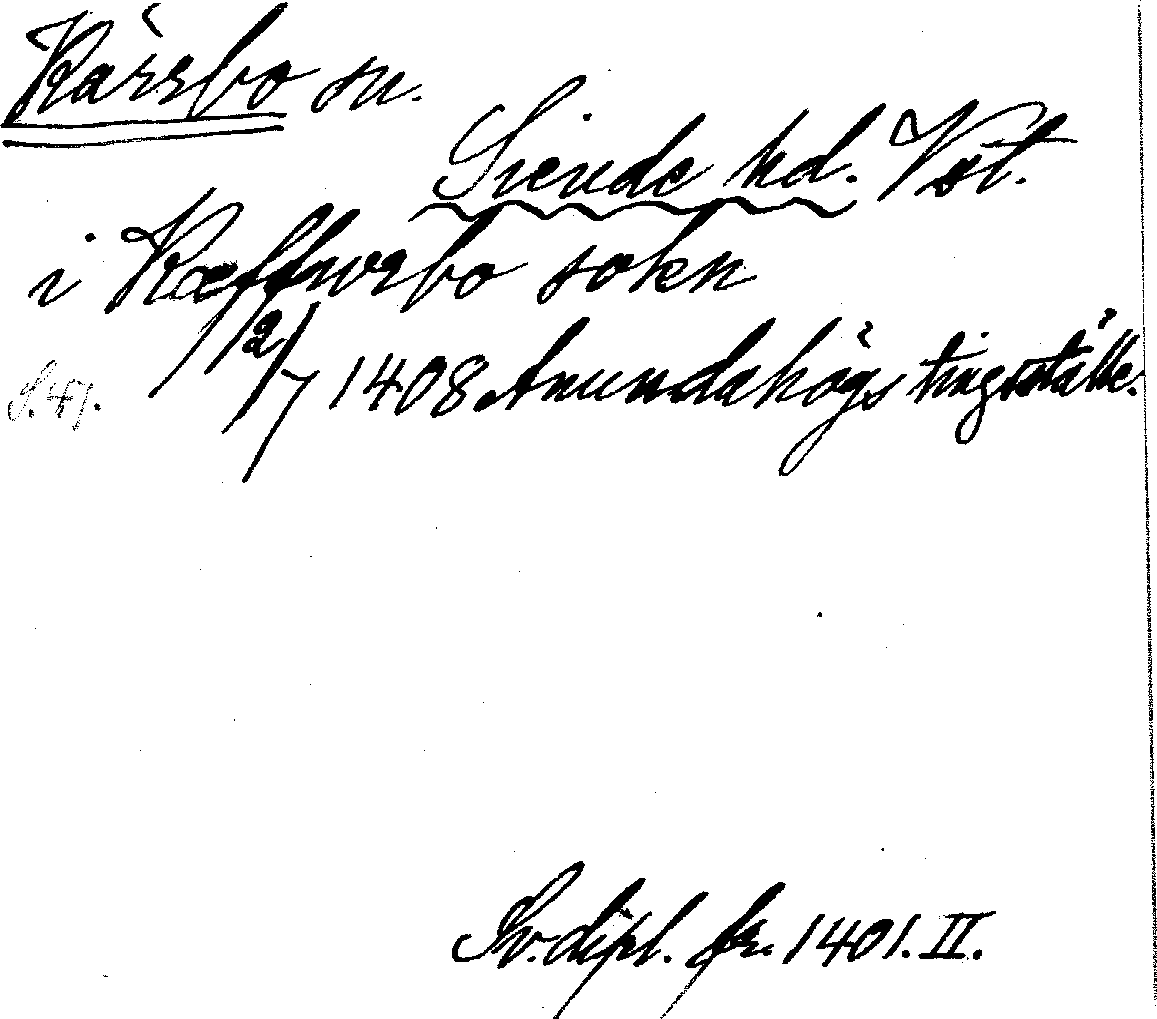 Kärrbo sn.
Siende hd. Vst.
i Kæffwrbo sokn
S. 41. 2/7 1408 Anundahögs tingsställe.
Sv. dipl. fr. 1401. II.